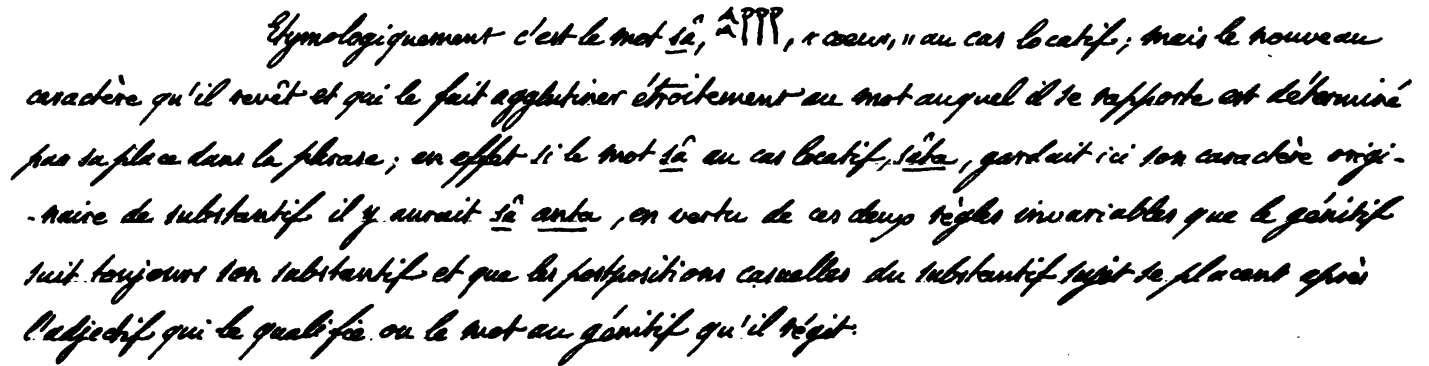 Etymologiquement c'est le mot sâ, , « cœur, » au cas locatif; mais le nouveau
caractère qu'il revêt et qui le fait agglutiner étroitement au mot auquel il se rapporte est déterminé
par sa place dans la phrase; en effet si le mot sâ au cas locatif, sâta, gardait ici son caractère origi-
-naire de substantif il y aurait sâ anta, en vertu de ces deux règles invariables que le génitif
suit toujours son substantif et que les postpositions casuelles du substantif sujet se placent après
l'adjectif qui le qualifie ou le mot au génitif qu'il régit.